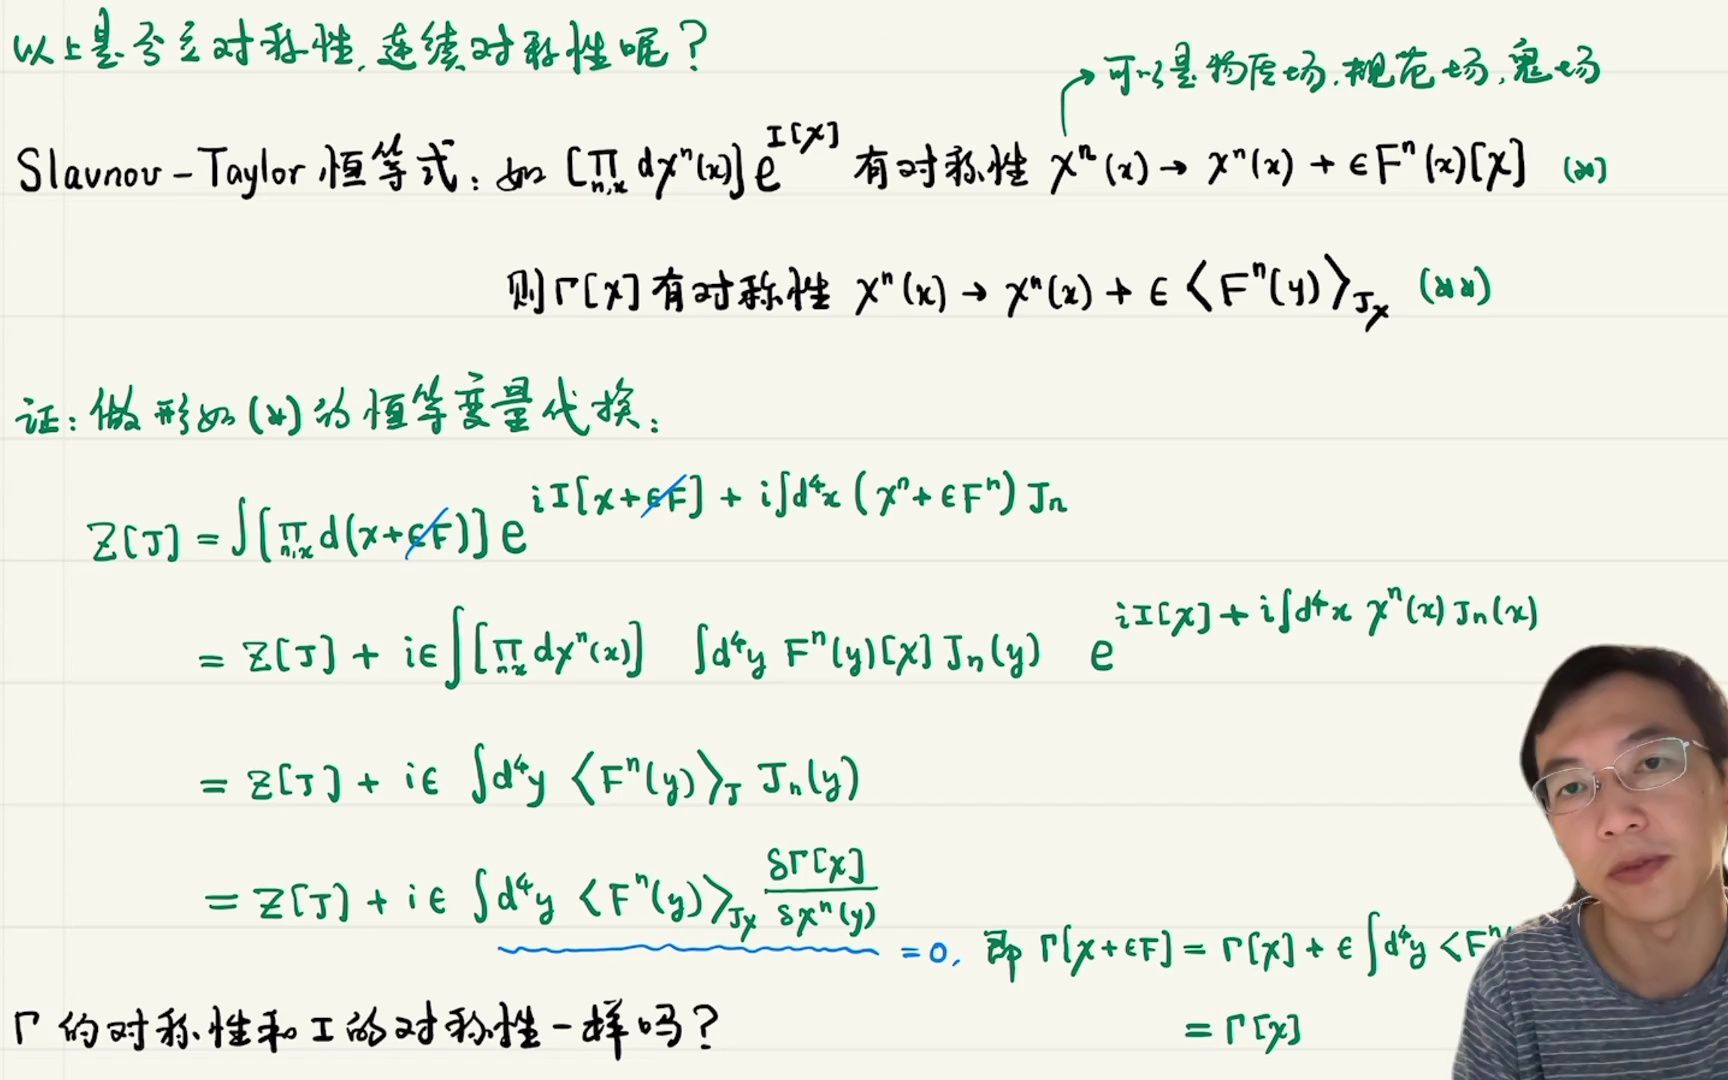 以上是分立对称性,连续对称性呢?
→可以是物质场,规范场,鬼场
Slavnov-Taylor恒等式:如 [∏_{n,x} dχⁿ(x)] e^{I[χ]} 有对称性 χⁿ(x) → χⁿ(x) + ϵFⁿ(x)[χ] (*)
则Γ[χ]有对称性 χⁿ(x) → χⁿ(x) + ϵ⟨Fⁿ(y)⟩_{J_χ} (**)
证:做形如(*)的恒等变量代换:
Z[J] = ∫[∏_{n,x} d(χ+ϵF)] e^{iI[χ+ϵF] + i∫d⁴x (χⁿ+ϵFⁿ) Jn}
= Z[J] + iϵ∫[∏_{n,x} dχⁿ(x)] ∫d⁴y Fⁿ(y)[χ] Jn(y) e^{iI[χ] + i∫d⁴x χⁿ(x) Jn(x)}
= Z[J] + iϵ ∫d⁴y ⟨Fⁿ(y)⟩_J Jn(y)
= Z[J] + iϵ ∫d⁴y ⟨Fⁿ(y)⟩_{J_χ} δΓ[χ]/δχⁿ(y) = 0, 即 Γ[χ+ϵF] = Γ[χ] + ϵ∫d⁴y <Fⁿ
= Γ[χ]
Γ的对称性和I的对称性一样吗?